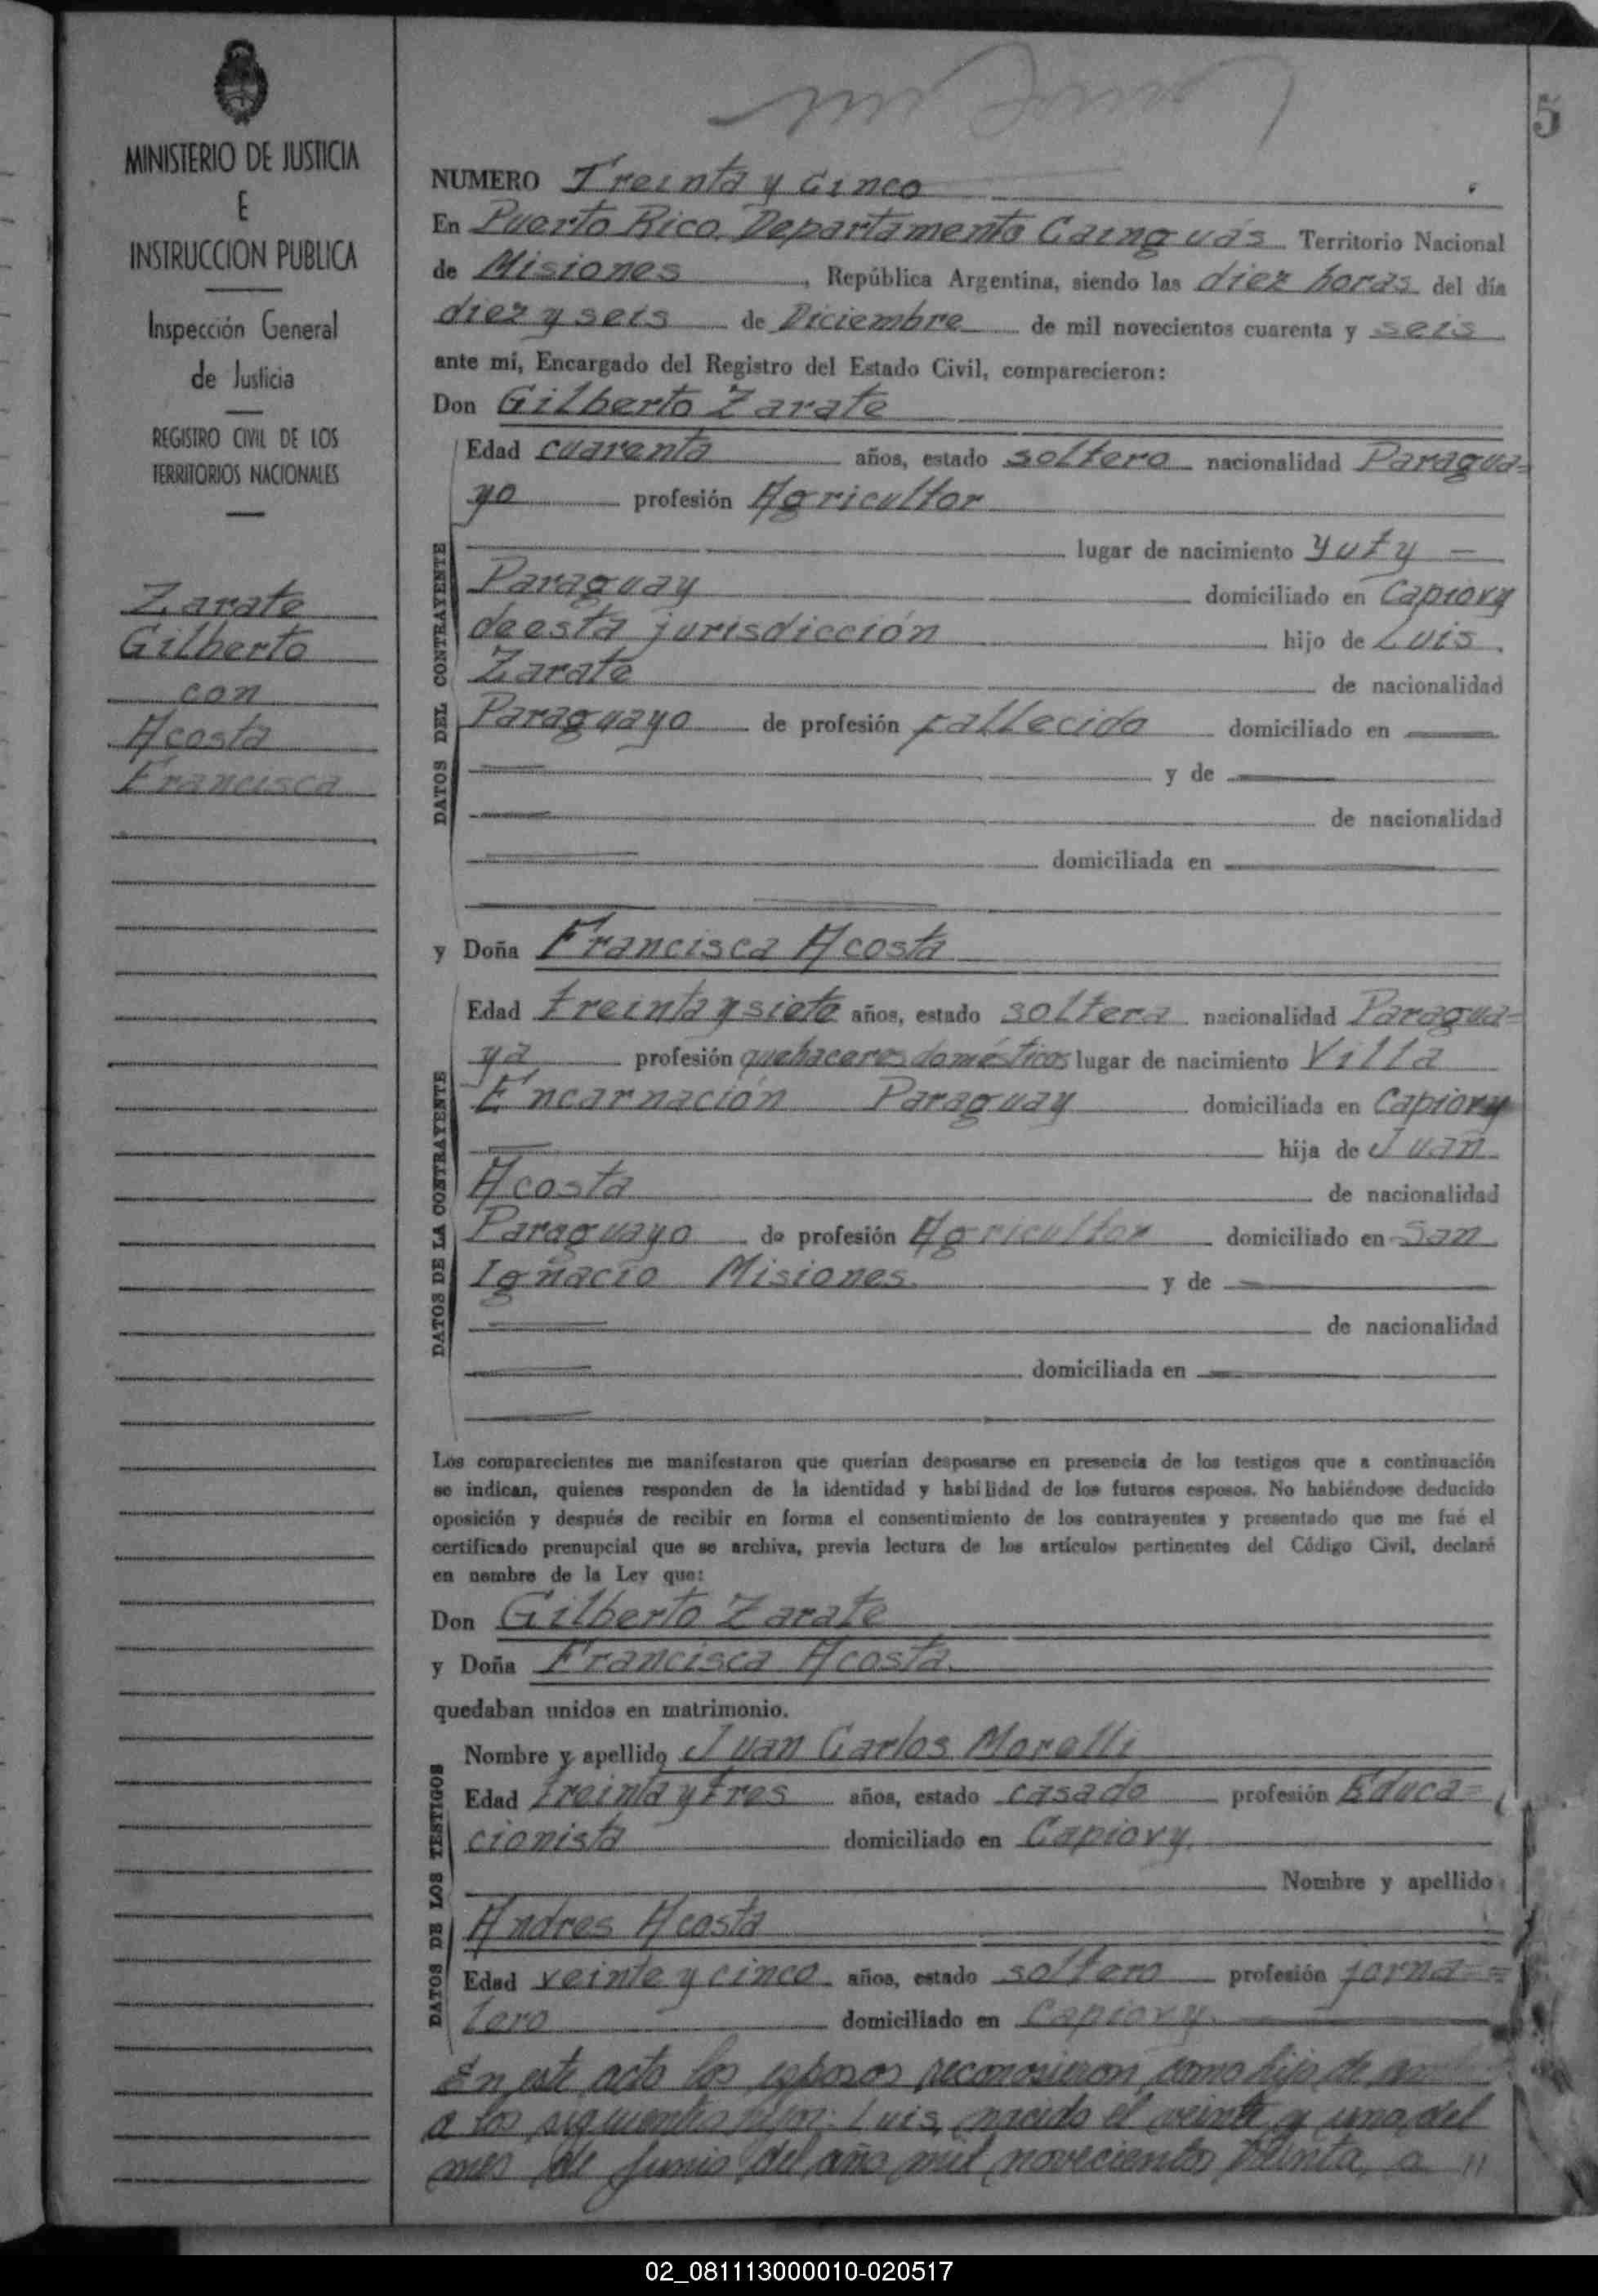 5
MINISTERIO DE JUSTICIA
E
INSTRUCCION PUBLICA
Inspección General
de Justicia
REGISTRO CIVIL DE LOS
TERRITORIOS NACIONALES
Zarate
Gilberto
con
Acosta
Francisca
NUMERO Treinta y Cinco
En Puerto Rico. Departamento Cainguás Territorio Nacional
de Misiones, República Argentina, siendo las diez horas del día
diez y seis de Diciembre de mil novecientos cuarenta y seis
ante mí, Encargado del Registro del Estado Civil, comparecieron:
Don Gilberto Zarate
DATOS DEL CONTRAYENTE
Edad cuarenta años, estado soltero nacionalidad Paragua=
yo profesión Agricultor
lugar de nacimiento Yuty —
Paraguay domiciliado en Capiovy
de esta jurisdicción hijo de Luis
Zarate de nacionalidad
Paraguayo de profesión fallecido domiciliado en —
y de —
de nacionalidad
domiciliada en —
y Doña Francisca Acosta
DATOS DE LA CONTRAYENTE
Edad treinta y siete años, estado soltera nacionalidad Paragua=
ya profesión quehaceres domésticos lugar de nacimiento Villa
Encarnación Paraguay domiciliada en Capiovy
hija de Juan
Acosta de nacionalidad
Paraguayo de profesión Agricultor domiciliado en San
Ignacio Misiones. y de —
de nacionalidad
domiciliada en —
Los comparecientes me manifestaron que querían desposarse en presencia de los testigos que a continuación
se indican, quienes responden de la identidad y habilidad de los futuros esposos. No habiéndose deducido
oposición y después de recibir en forma el consentimiento de los contrayentes y presentado que me fué el
certificado prenupcial que se archiva, previa lectura de los artículos pertinentes del Código Civil, declaré
en nombre de la Ley que:
Don Gilberto Zarate
y Doña Francisca Acosta.
quedaban unidos en matrimonio.
DATOS DE LOS TESTIGOS
Nombre y apellido Juan Carlos Morelli
Edad treinta y tres años, estado casado profesión Educa=
cionista domiciliado en Capiovy.
Nombre y apellido
Andres Acosta
Edad veinte y cinco años, estado soltero profesión jorna=
lero domiciliado en Capiovy.
En este acto los esposos reconocieron como hijo de
a los siguientes hijos: Luis, nacido el veinte y uno del
mes de Junio del año mil novecientos treinta, a "
02_081113000010-020517